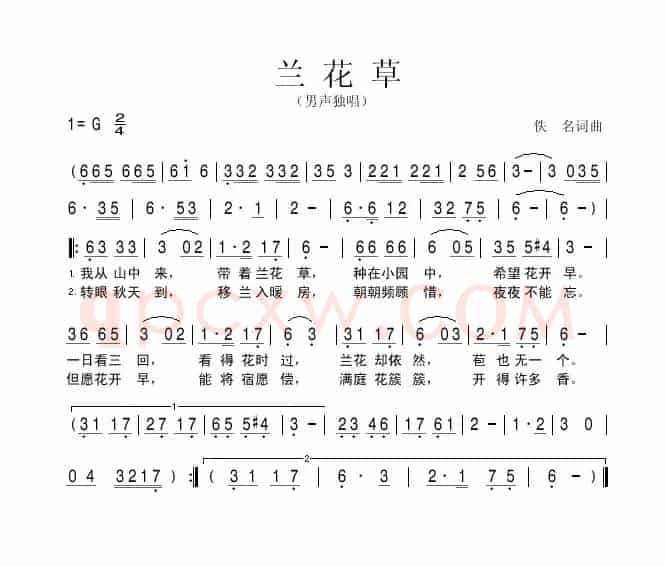 兰花草
（男声独唱）
1=G 2/4 佚 名词曲
(665 665 | 61 6 | 332 332 | 35 3 | 221 221 | 2 56 | 3- | 3 035 |
6· 35 | 6· 53 | 2· 1 | 2 - | 6·6 12 | 32 75 | 6- | 6 -)|
‖: 63 33 | 3 02 | 1·2 17 | 6 - | 66 66 | 6 05 | 35 5#4 | 3 - |
1.我从山中 来， 带 着兰花 草， 种在小园 中， 希望花开 早。
2.转眼秋天 到， 移 兰入暖 房， 朝朝频顾 惜， 夜夜不能 忘。
36 65 | 3 02 | 1·2 17 | 6 3 | 31 17 | 6 03 | 2·1 75 | 6 - |
一日看三 回， 看 得花时 过， 兰花 却依 然， 苞 也无一 个。
但愿花开 早， 能 将宿愿 偿， 满庭 花簇 簇， 开 得许多 香。
1
(31 17 | 27 17 | 65 5#4 | 3 - | 23 46 | 17 61 | 2 - | 1·2 | 3 0 |
2
04 3217) :‖ ( 31 17 | 6· 3 | 2·1 75 | 6 - ) ‖
qpcxw.com